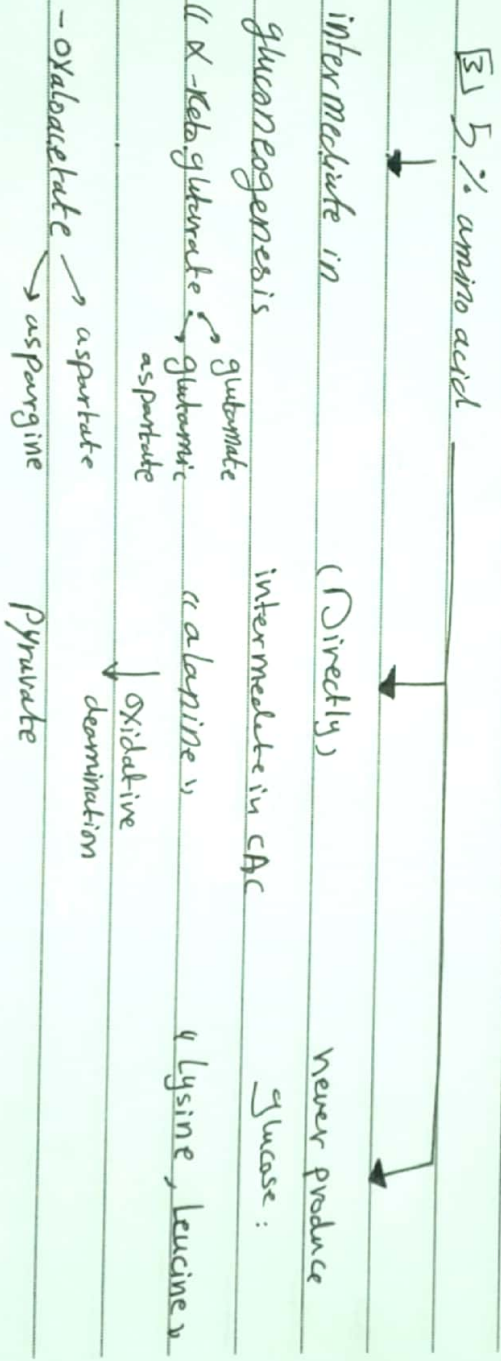 [3] 5 % amino acid
intermediate in
gluconeogenesis
(( α-Ketoglutarate
glutamate
glutamic
aspartate
- oxaloacetate
aspartate
aspargine
(Directly)
intermedete in CAC
(( alanine ))
oxidative
deamination
Pyruvate
never produce
glucose :
(( Lysine , Leucine ))